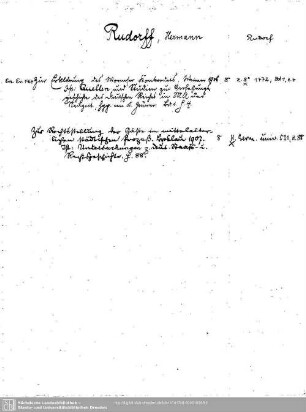 Rudorff, Hermann
Zur Erklärung des Wormser Konkordats. Weimar 1906. 8°
Ist: Quellen und Studien zur Verfassungs-
geschichte des Deutschen Reichs in M.A. und
Neuzeit. Hgg. von K. Zeumer. Bd 1. H 4.
Zur Rechtsstellung der Gäste im mittelalter-
lichen städtischen Prozeß. Breslau 1907. 8
Ist: Untersuchungen z. deut. Staats- u.
Rechtsgeschichte. H. 88.
Sächsische Landesbibliothek -
Staats- und Universitätsbibliothek Dresden